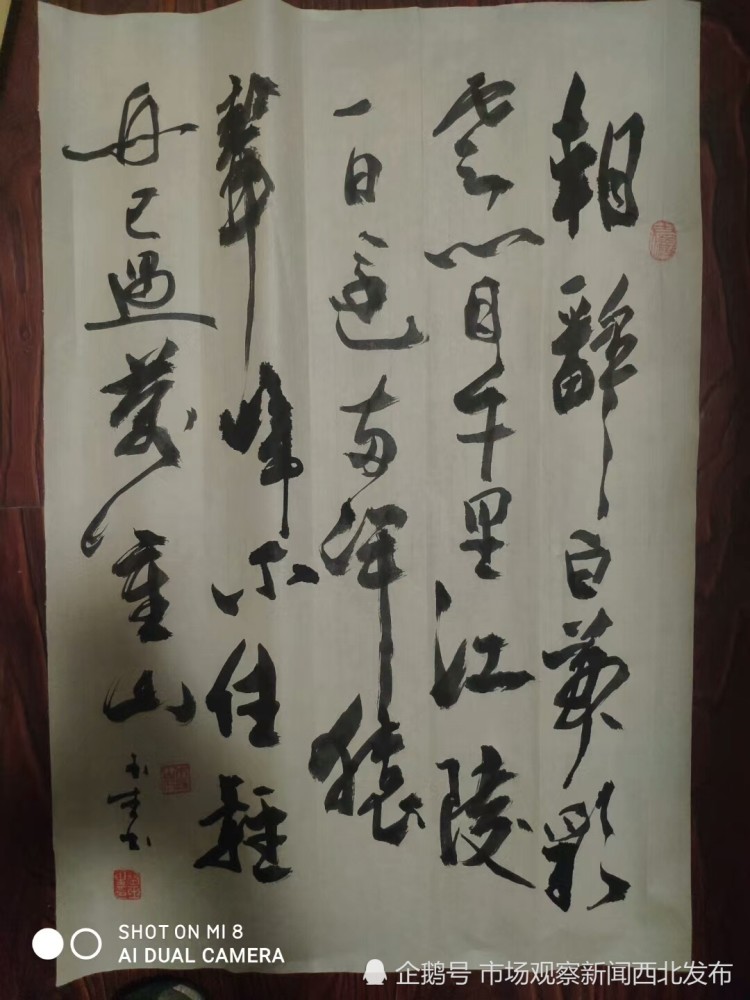 朝辭白帝彩
雲间千里江陵
一日還两岸猿
聲啼不住輕
舟已過萬重山
SHOT ON MI 8
AI DUAL CAMERA
企鹅号 市场观察新闻西北发布